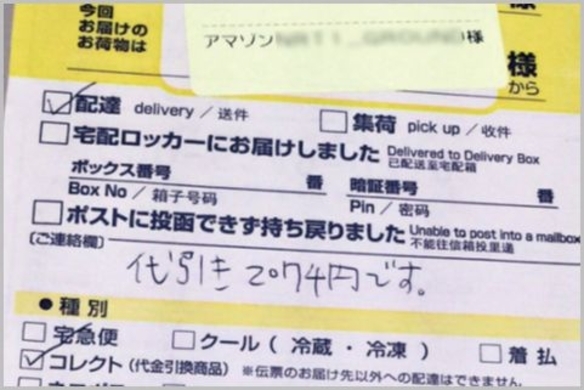 今回
お届けの
お荷物は
アマゾン 様
様
様
から
配達 delivery / 送件
集荷 pick up / 收件
宅配ロッカーにお届けしました Delivered to Delivery Box
已配送至宅配箱
ボックス番号 番
Box No / 箱子号码
暗証番号 番
Pin / 密码
ポストに投函できず持ち戻りました Unable to post into a mailbox
不能往信箱投里递
(ご連絡欄)
代引き 2074円です。
●種別
宅急便
クール( 冷蔵・冷凍 )
着払
コレクト(代金引換商品) ※伝票のお届け先以外への配達はできません